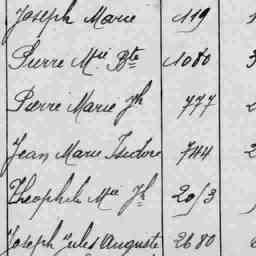 Joseph Marie 119 1
Pierre Mie Bte 1080 3
Pierre Marie Jh 777
Jean Marie Isidore 744 2
Théophile Mie Jh 2013
Joseph Jules Auguste 2680